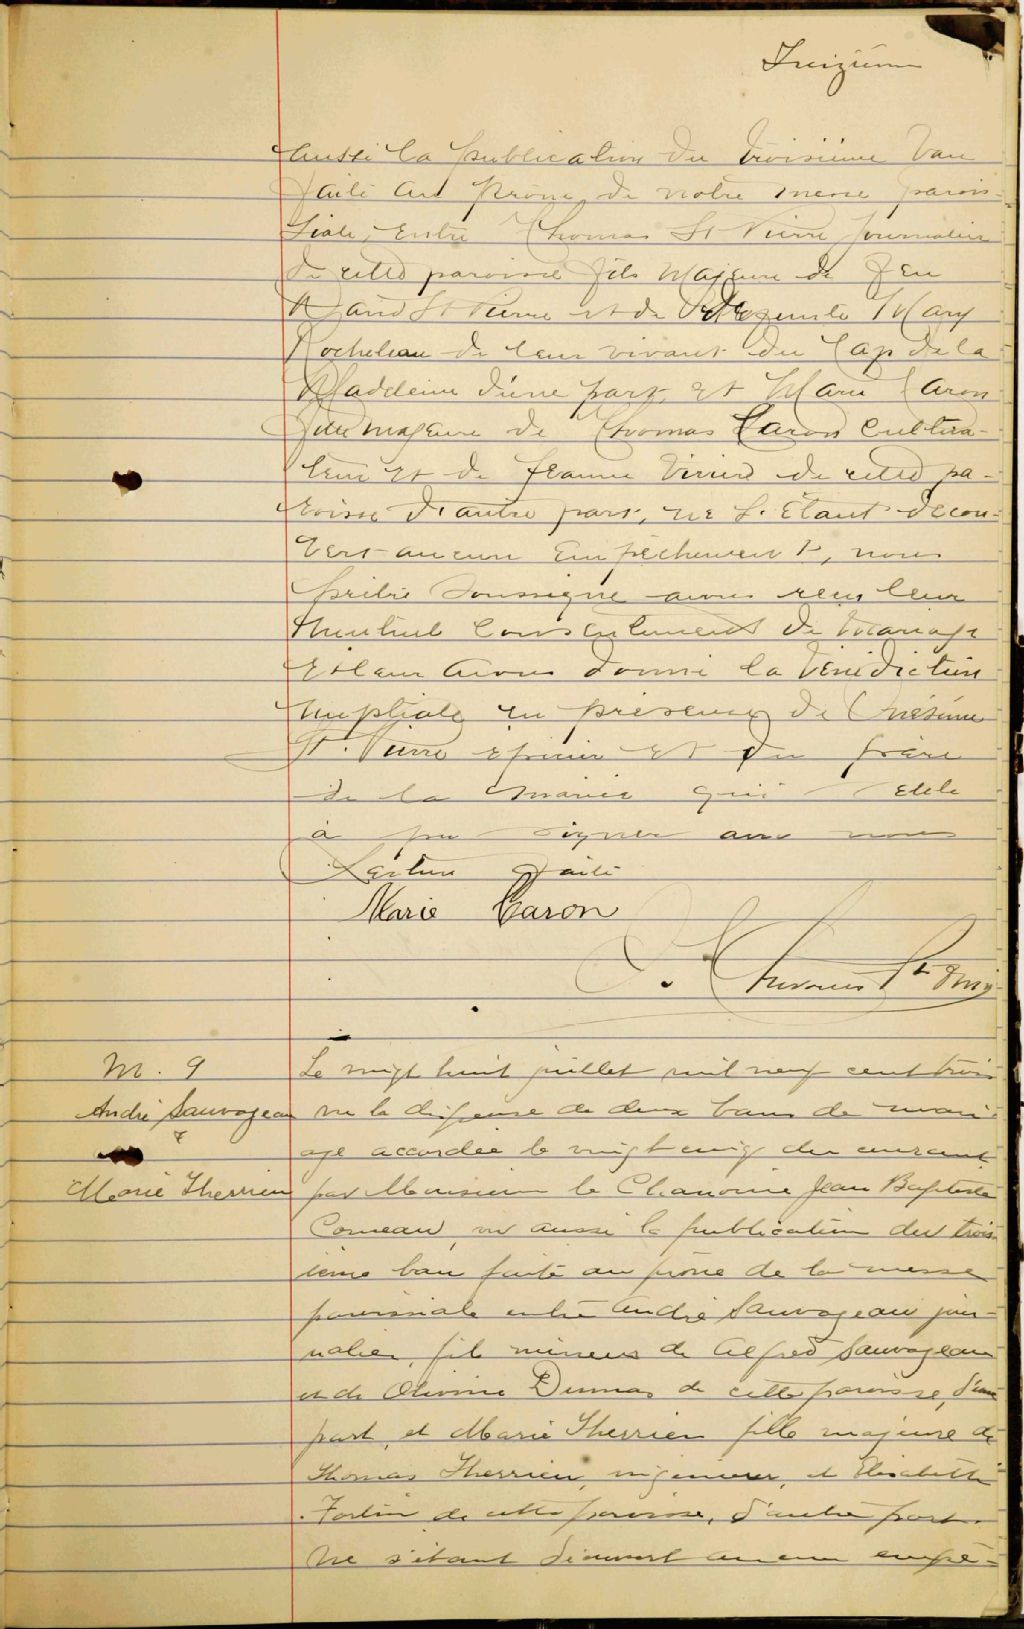 Treizième
aussi la publication du troisième ban
faite au prône de notre messe parois-
siale, entre Thomas St Pierre journalier
de cette paroisse fils majeur de feu
David St Pierre et de Mary
Rocheleau de leur vivant du Cap de la
Madeleine d'une part, et Marie Caron
fille majeure de Thomas Caron cultiva-
teur et de Jeanne de cette pa-
roisse d'autre part, ne s'étant décou-
vert aucun empêchement, nous
prêtre soussigné avons reçu leur
mutuel consentement de mariage
et leur avons donné la bénédiction
nuptiale en présence de Onésime
St. Pierre épicier et du frère
de la mariée qui elle
a pu signer avec nous
Lecture faite
Marie Caron
M. 9
André Sauvageau
&
Marie Therrien
Le vingt huit juillet mil neuf cent trois
vu la dispense de deux bans de mari-
age accordée le vingt cinq du courant
par Monsieur le Chanoine Jean Baptiste
Comeau, vu aussi la publication du trois-
ième ban faite au prône de la messe
paroissiale entre André Sauvageau jour-
nalier, fils mineur de Alfred Sauvageau
et de Olivine Dumas de cette paroisse, d'une
part, et Marie Therrien fille majeure de
Thomas Therrien, et Elisabeth
Fortin de cette paroisse, d'autre part.
Ne s'étant découvert aucun empê-